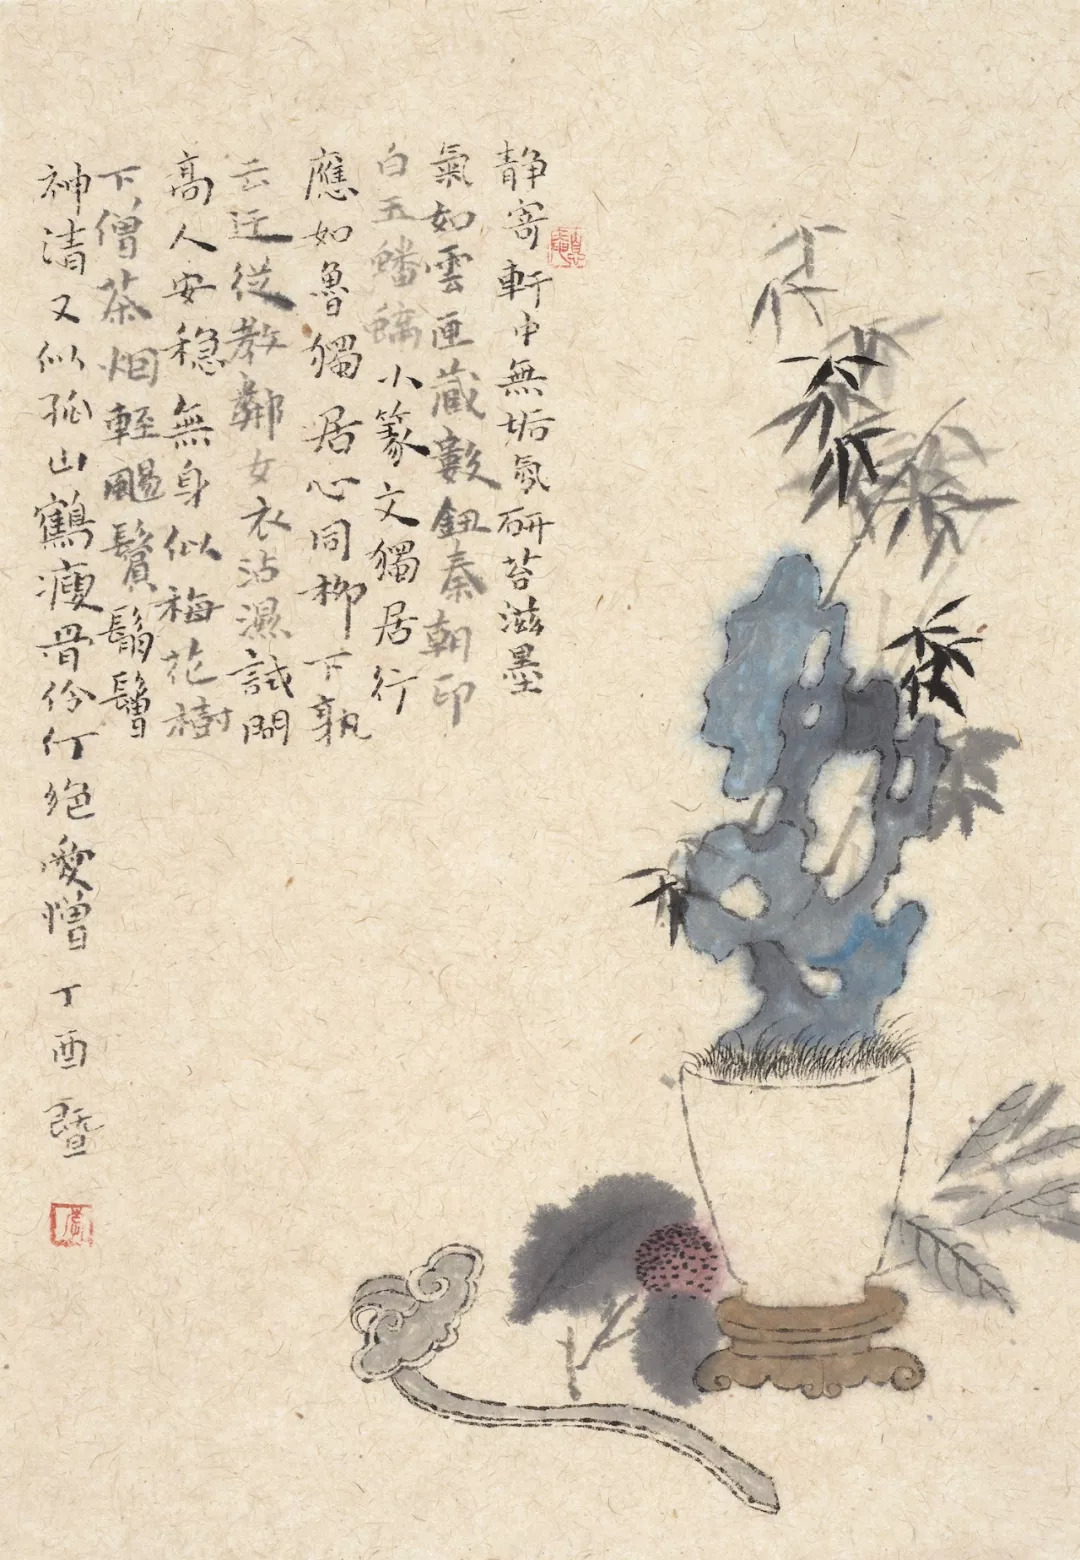 静寄軒中無垢氛研苔滋墨
氣如雲匣藏數鈕秦朝印
白玉蟠螭小篆文獨居行
應如魯獨居心同柳下孰
云迂從教鄰女衣沾濕試問
高人安稳無身似梅花樹
下僧茶烟輕颺鬢鬅鬙
神清又似孤山鶴瘦骨伶仃絕愛憎 丁酉 暨